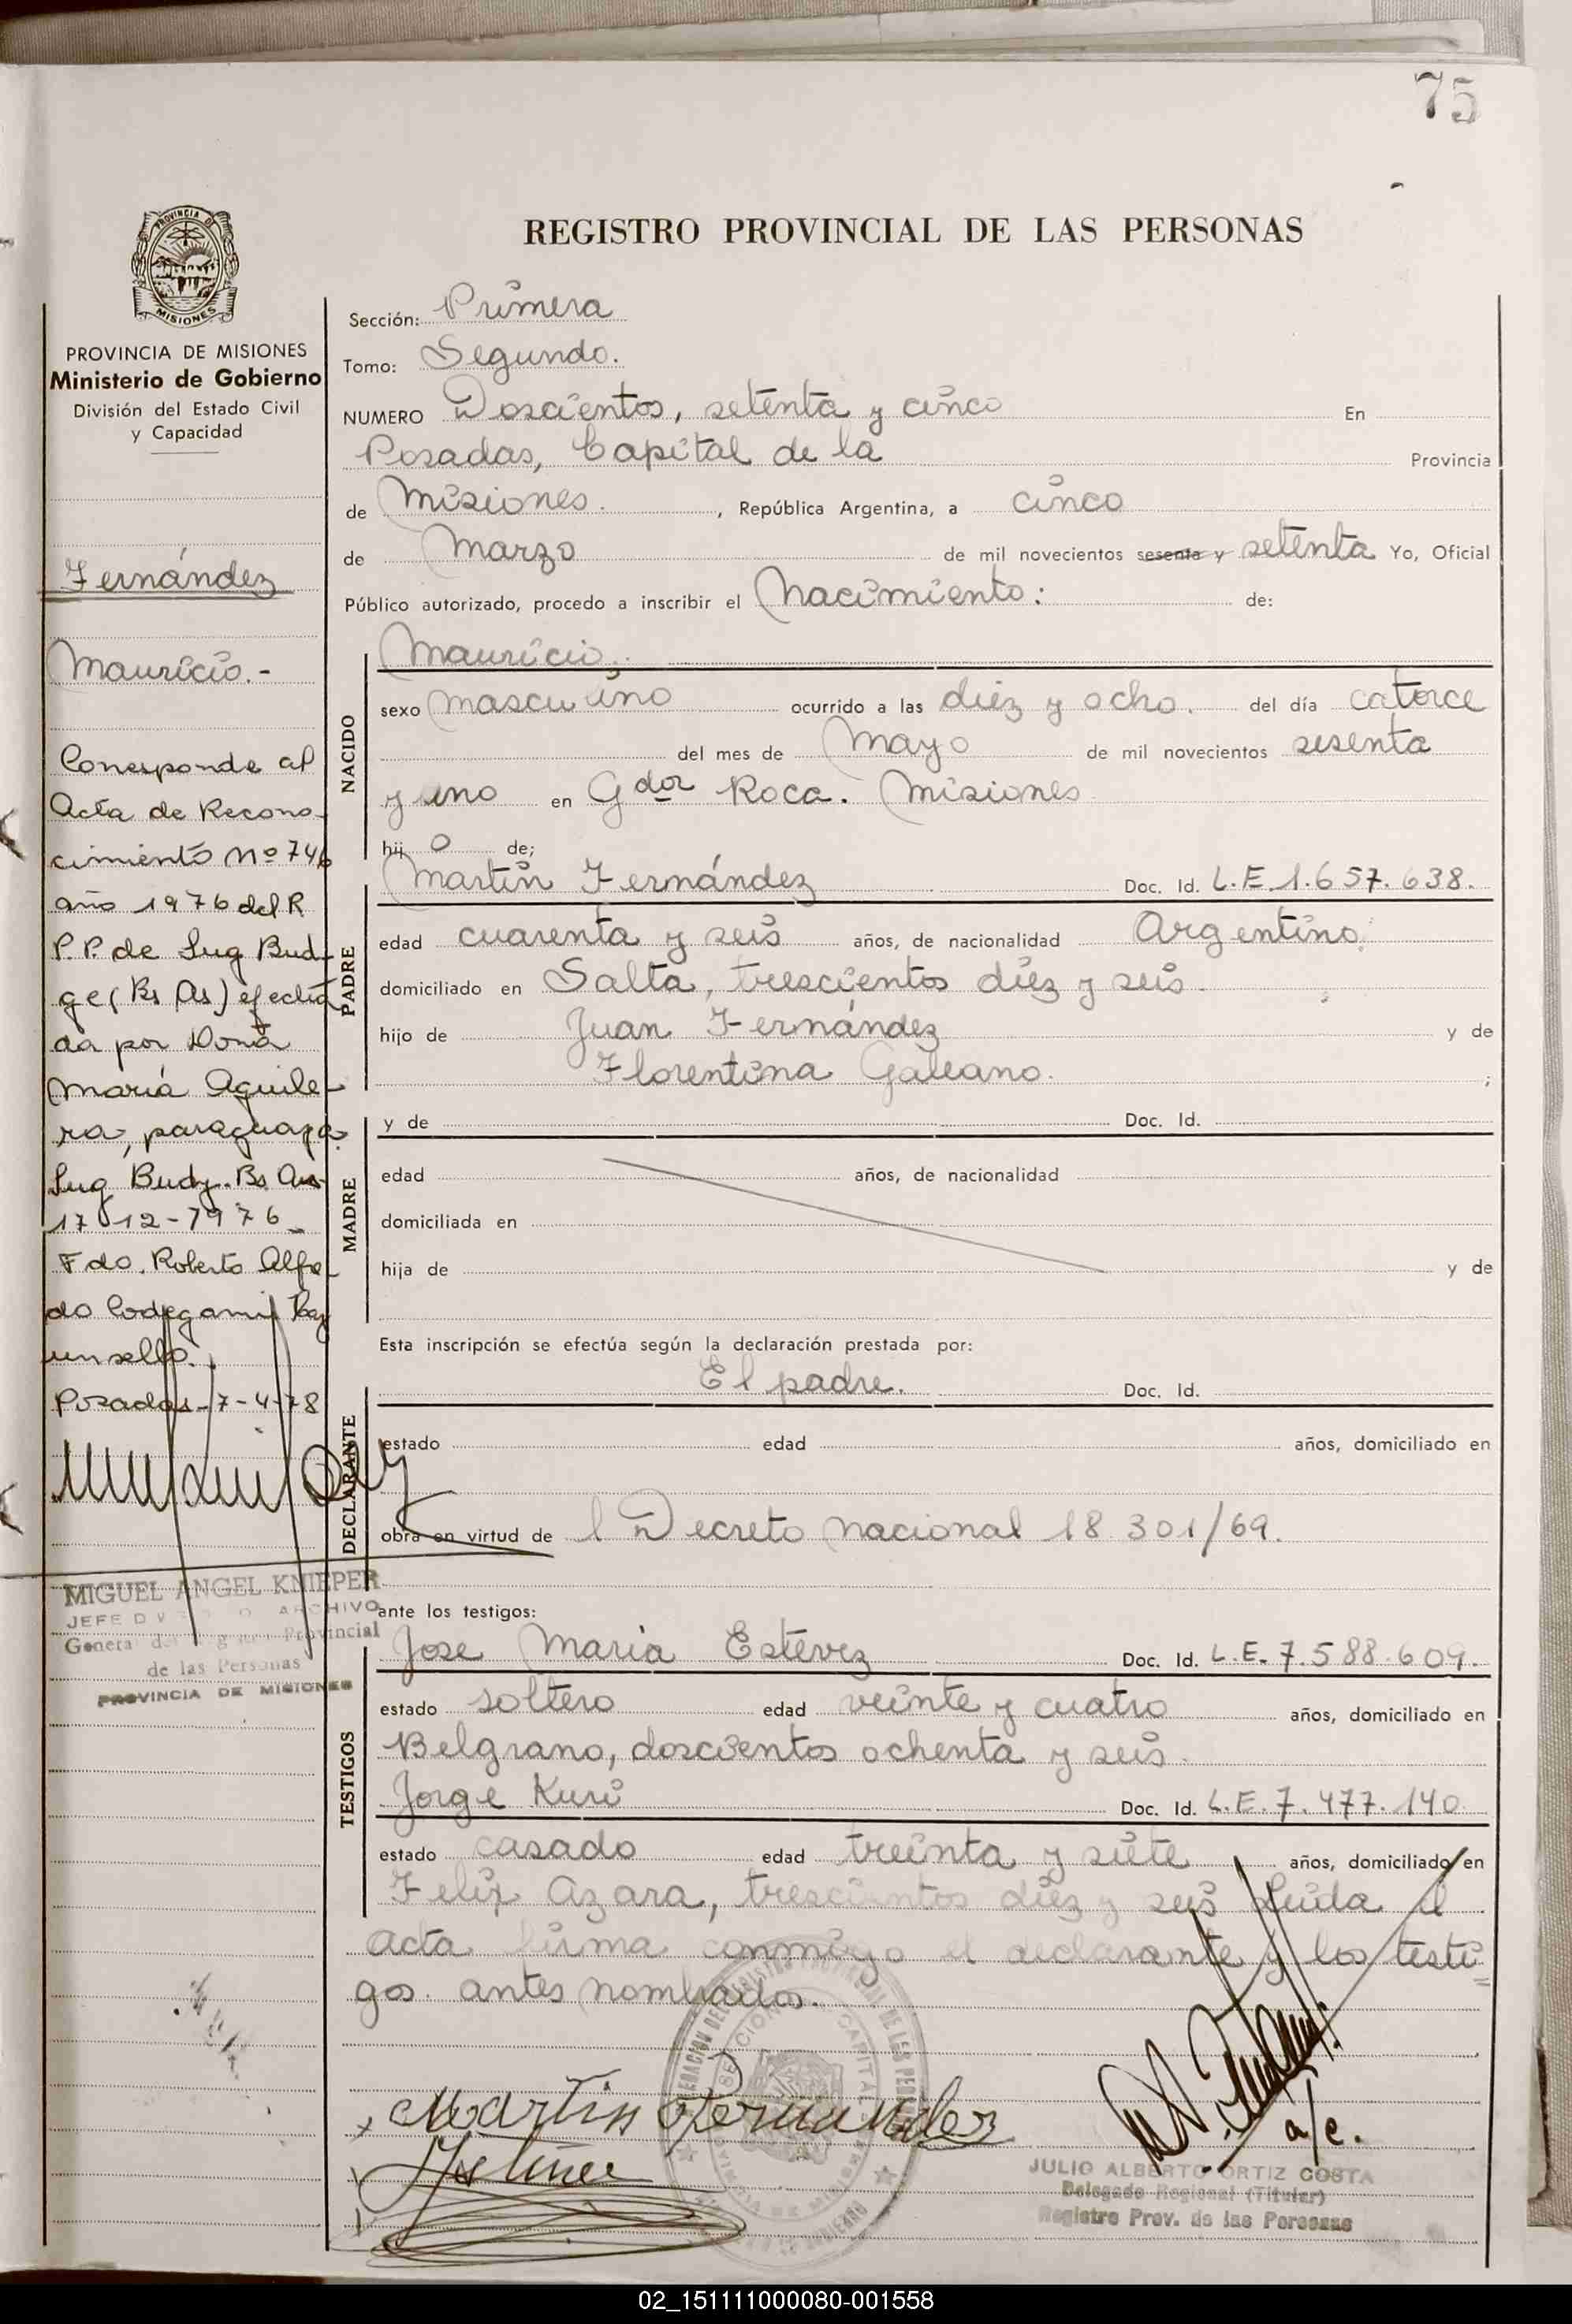 75
PROVINCIA DE MISIONES
REGISTRO PROVINCIAL DE LAS PERSONAS
PROVINCIA DE MISIONES
Ministerio de Gobierno
División del Estado Civil
y Capacidad
Fernández
Mauricio.-
Corresponde al
Acta de Recono-
cimiento Nº 746
año 1976 del R
P.P. de Ing Bud
ge (Bs As) efectua
da por Doña
María Aguile-
ra, paraguaya.
Ing Budg. Bs As
17-12-1976-
Fdo. Roberto Alfre
do Codegami Hay
un sello.
Posadas-7-4-78
MIGUEL ANGEL KNIEPER
JEFE ARCHIVO
General del Registro Provincial
de las Personas
PROVINCIA DE MISIONES
Sección: Primera
Tomo: Segundo.
NUMERO Doscientos, setenta y cinco En
Posadas, Capital de la Provincia
de Misiones. , República Argentina, a cinco
de Marzo de mil novecientos sesenta y setenta Yo, Oficial
Público autorizado, procedo a inscribir el Nacimiento: de:
NACIDO
Mauricio.
sexo masculino ocurrido a las diez y ocho. del día catorce
del mes de Mayo de mil novecientos sesenta
y uno en Gdor Roca. Misiones
hij o de;
PADRE
Martín Fernández Doc. Id. L.E 1.657.638.
edad cuarenta y seis años, de nacionalidad Argentino.
domiciliado en Salta, trescientos diez y seis.
hijo de Juan Fernández y de
Florentina Galeano. ;
MADRE
y de Doc. Id.
edad años, de nacionalidad
domiciliada en
hija de y de
Esta inscripción se efectúa según la declaración prestada por:
DECLARANTE
El padre. Doc. Id.
estado edad años, domiciliado en
obra en virtud de l Decreto Nacional 18.301/69.
ante los testigos:
TESTIGOS
Jose María Estévez Doc. Id. L.E. 7.588.609.
estado soltero edad veinte y cuatro años, domiciliado en
Belgrano, doscientos ochenta y seis.
Jorge Kuri Doc. Id. L.E. 7.477.140
estado casado edad treinta y siete años, domiciliado en
Felix Azara, trescientos diez y seis Leída el
acta firma conmigo el declarante y los testi
gos antes nombrados.
Martin Fernandez
a/c.
JULIO ALBERTO ORTIZ COSTA
Delegado Regional (Titular)
Registro Prov. de las Personas
02_151111000080-001558